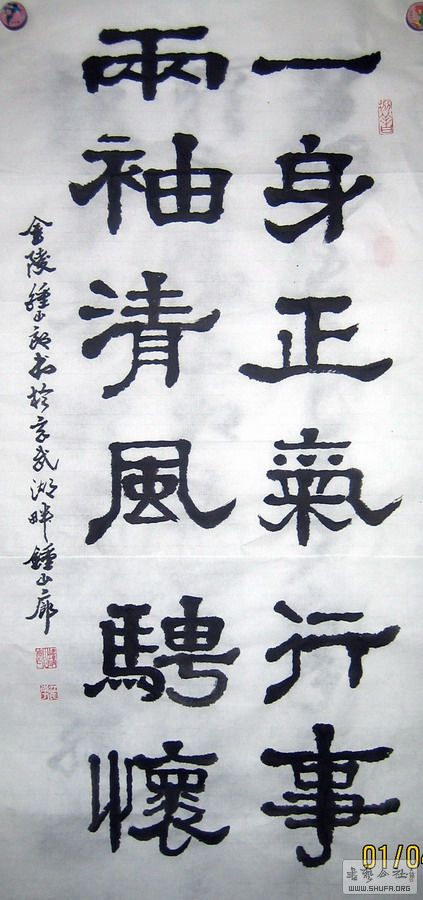 一身正氣行事
兩袖清風騁懷
金陵鍾山郎书於玄武湖畔鍾山廊
01/0
WWW.SHUFA.ORG